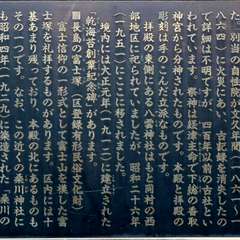 た）別当の自性院が文久年間（一八六一〜一
八六四）に火災にあい、古記録を消失したの
で詳細は不明ですが、四百年以前の古社とい
われています。祭神は経津主命で下総の香取
神宮から分神されたものです。本殿と拝殿の
彫刻は手のこんだ立派なものです。
拝殿の東側にある雷神社はもと同村の西
部地区に祀られていましたが、昭和二十六年
（一九五一）にここに移されました。
境内には大正元年（一九一二）に建立された
「乾海苔創業紀念碑」があります。
■長島の富士塚（区登録有形民俗文化財）
富士信仰の一形式として富士山を模した富
士塚を礼拝するものがあります。区内には十
基あまり残っており、本殿の北にあるものも
その一つです。なお、この近くの桑川神社に
も昭和四年（一九二九）に築造された「桑川の